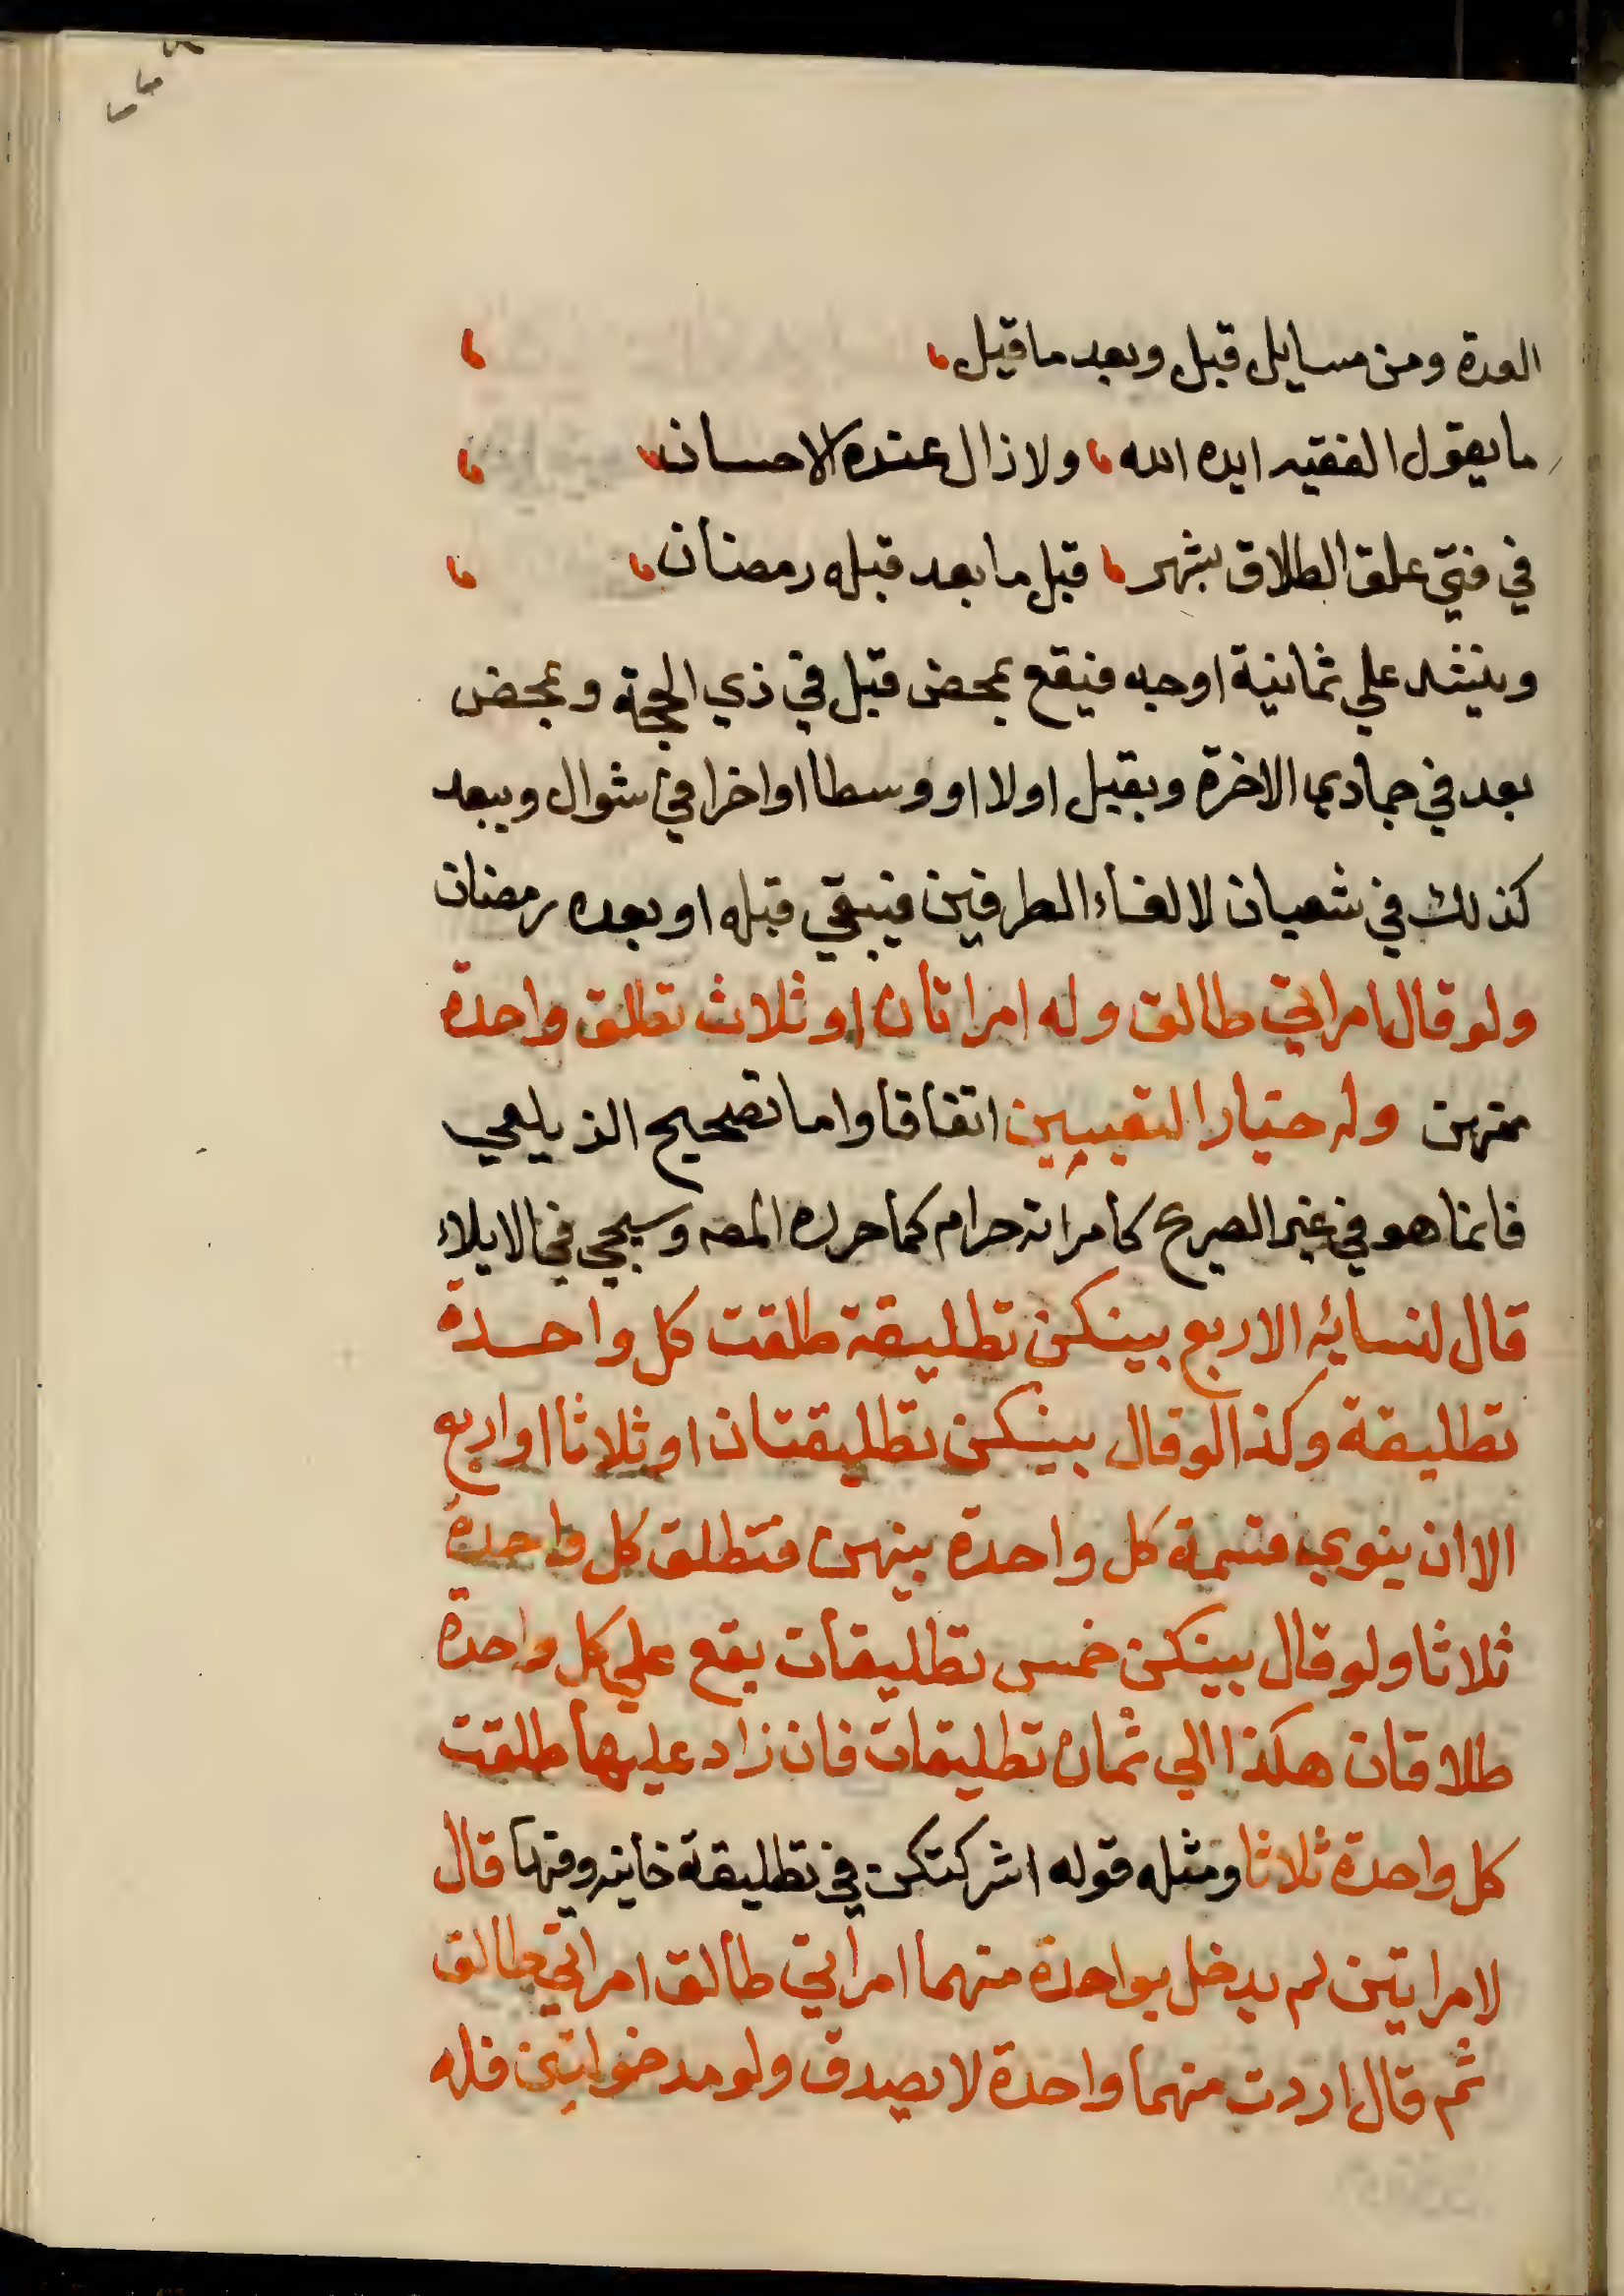 العدة ومن مسايل قبل وبعد ما قيل
ما يقول الفقيه ايده الله ولا زال عنده الاحسان
في فتي علق الطلاق بشهر قبل ما بعد قبله رمضان
وينشد علي ثمانية اوجه فيقع بمحض قبل في ذي الحجة وبمحض
بعد في جمادي الاخرة وبقيل اولا او وسطا او اخرا في شوال وببعد
كذلك في شعبان لالغاء الطرفين فيبقي قبله او بعده رمضان
ولو قال امراتي طالق وله امراتان او ثلاث تطلق واحدة
منهن وله خيار التعيين اتفاقا واما تصحيح الزيلعي
فانما هو في غير الصريح كامراته حرام كما حرره المص وسيجي في الايلاء
قال لنسائه الاربع بينكن تطليقة طلقت كل واحدة
تطليقة وكذا لو قال بينكن تطليقتان او ثلاثا او اربع
الا ان ينوي قسمة كل واحدة بينهن فتطلق كل واحدة
ثلاثا ولو قال بينكن خمس تطليقات يقع علي كل واحدة
طلاقان هكذا الي ثمان تطليقات فان زاد عليها طلقت
كل واحدة ثلاثا ومثله قوله اشركتكن في تطليقة خانيه وفيها قال
لامراتين لم يدخل بواحدة منهما امراتي طالق امراتي طالق
ثم قال اردت منهما واحدة لا يصدق ولو مدخولتين فله